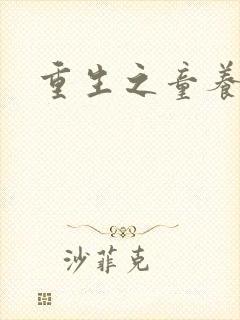 重生之童养
沙菲克